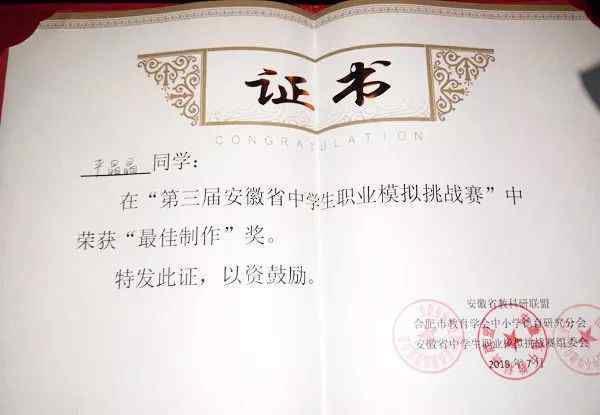 证书
CONGRATULATION
平晶晶 同学：
在“第三届安徽省中学生职业模拟挑战赛”中
荣获“最佳制作”奖。
特发此证，以资鼓励。
安徽省教科研联盟
合肥市教育学会中小学德育研究分会
安徽省中学生职业模拟挑战赛组委会
2018 年 7 月